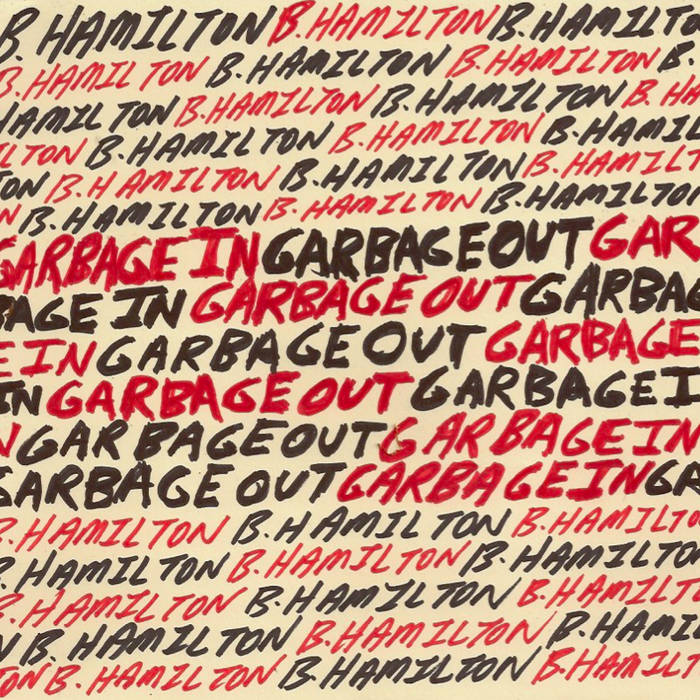 B. HAMILTON B. HAMILTON B. HAMILTO
B. HAMILTON B. HAMILTON B. HAMILTON B.
HAMILTON B. HAMILTON B. HAMILTON B. HA
LTON B. HAMILTON B. HAMILTON B. HAMI
ON B. HAMILTON B. HAMILTON B. HAMILT
N B. HAMILTON B. HAMILTON B. HAMILTON
GARBAGE IN GARBAGE OUT GAR
BAGE IN GARBAGE OUT GARBA
E IN GARBAGE OUT GARBAGE
IN GARBAGE OUT GARBAGE I
N GARBAGE OUT GARBAGE IN
GARBAGE OUT GARBAGE IN GA
B. HAMILTON B. HAMILTON B. HAMILT
B. HAMILTON B. HAMILTON B. HAMILTO
B. HAMILTON B. HAMILTON B. HAMILT
N B. HAMILTON B. HAMILTON B. HAMI
ON B. HAMILTON B. HAMILTON B. HAMIL